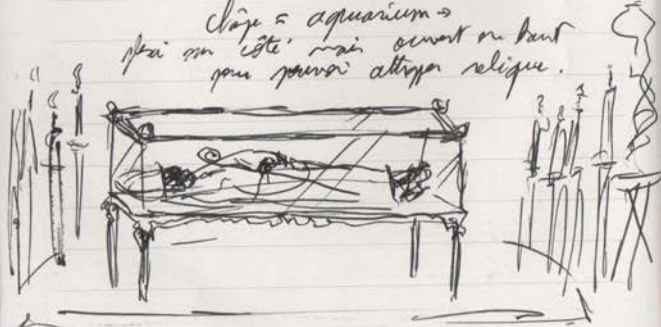 châsse = aquarium →
plexi sur côté mais ouvert en haut
pour pouvoir attraper relique.